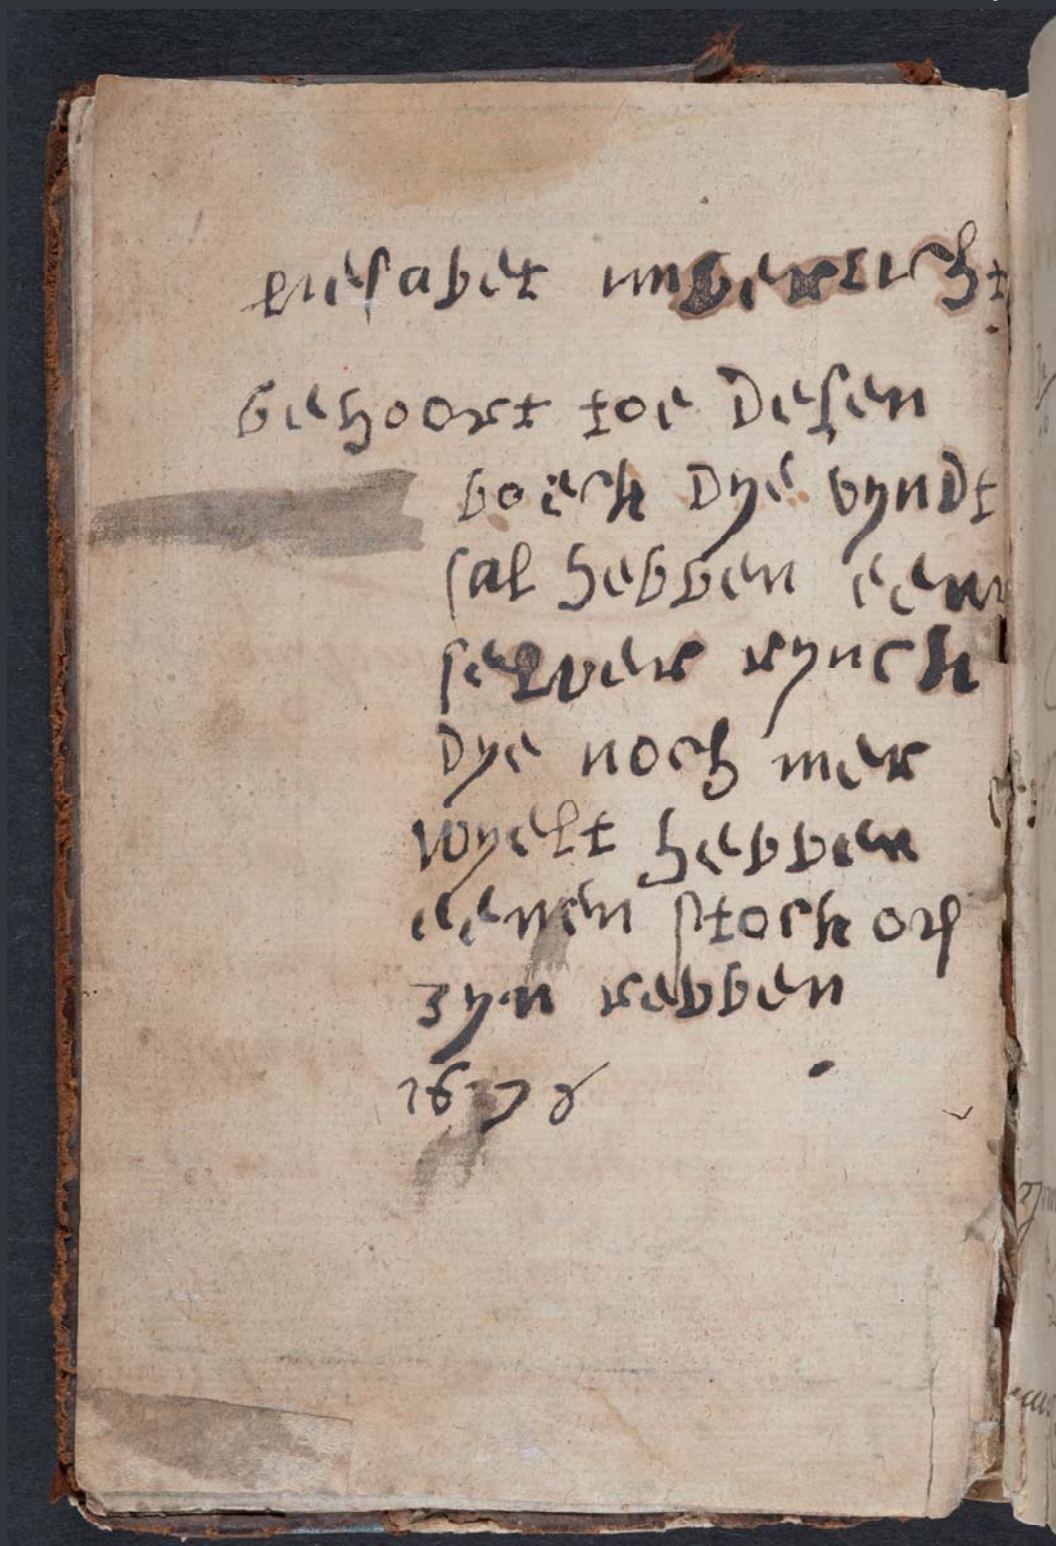 eliesabet
gehoort toe desen
boeck dye vyndt
sal hebben een
selver rynck
dye noch mer
wyelt hebben
eenen stock op
zyn rebben
1678